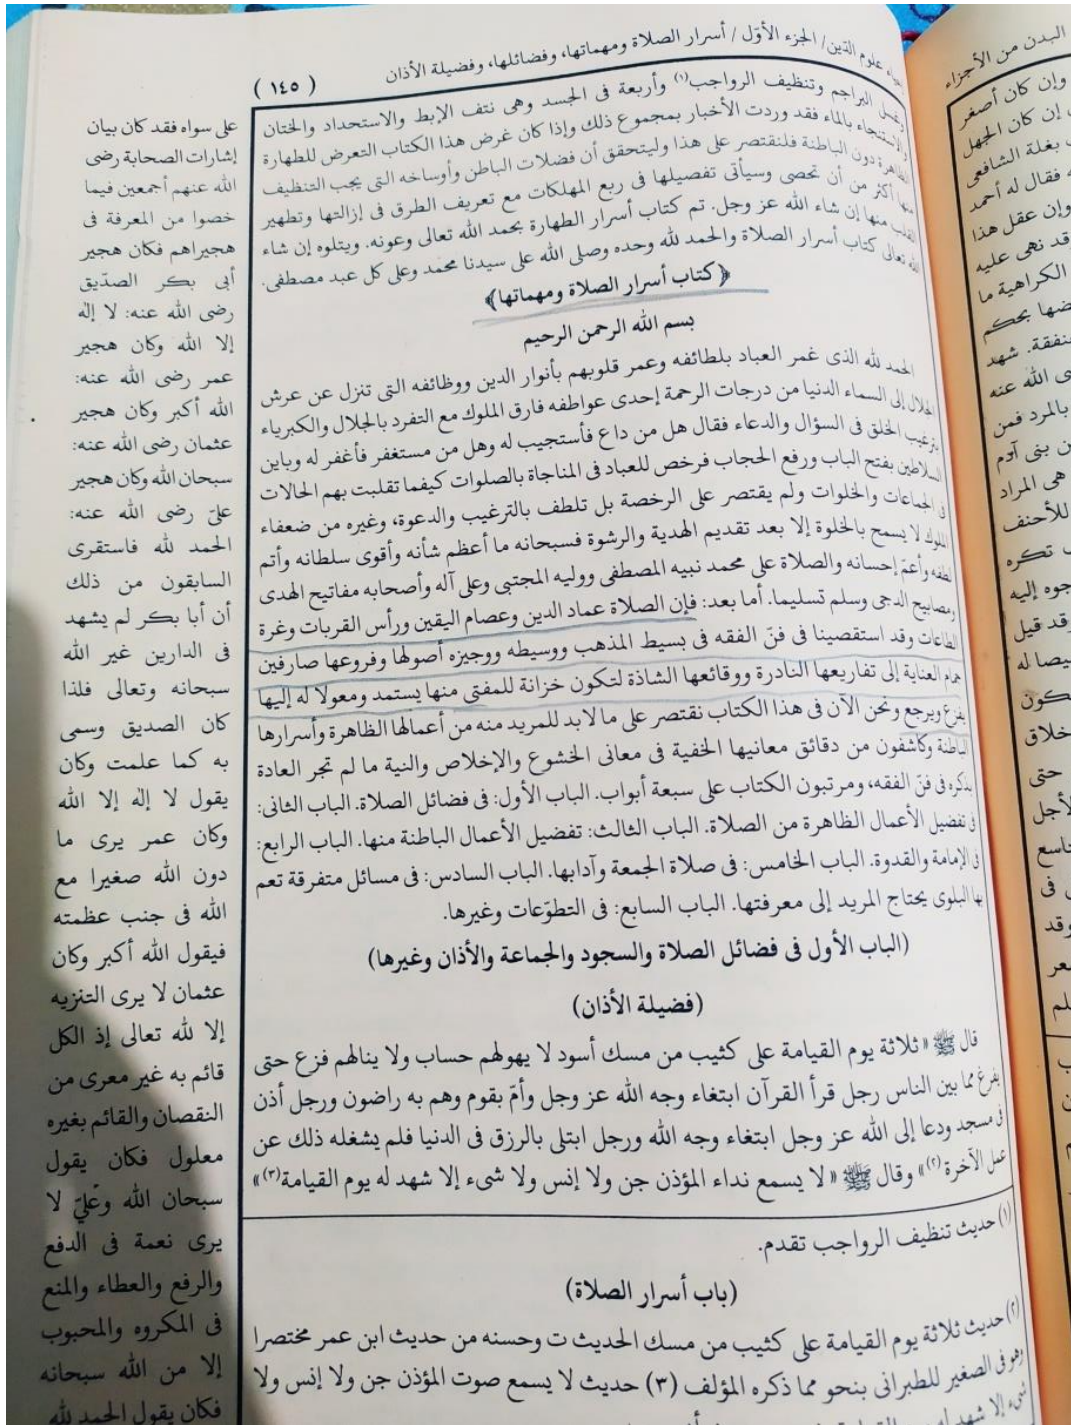 علوم الدين/ الجزء الأول/ أسرار الصلاة ومهماتها، وفضائلها، وفضيلة الأذان
( ١٤٥ )
وغسل البراجم وتنظيف الرواجب(١) وأربعة فى الجسد وهى نتف الإبط والاستحداد والختان
والاستنجاء بالماء فقد وردت الأخبار بمجموع ذلك وإذا كان غرض هذا الكتاب التعرض للطهارة
الظاهرة دون الباطنة فلنقتصر على هذا وليتحقق أن فضلات الباطن وأوساخه التى يجب التنظيف
منها أكثر من أن تحصى وسيأتى تفصيلها فى ربع المهلكات مع تعريف الطرق فى إزالتها وتطهير
القلب منها إن شاء الله عز وجل. تم كتاب أسرار الطهارة بحمد الله تعالى وعونه. ويتلوه إن شاء
الله تعالى كتاب أسرار الصلاة والحمد لله وحده وصلى الله على سيدنا محمد وعلى كل عبد مصطفى.
﴿كتاب أسرار الصلاة ومهماتها﴾
بسم الله الرحمن الرحيم
الحمد لله الذى غمر العباد بلطائفه وعمر قلوبهم بأنوار الدين ووظائفه التى تنزل عن عرش
الجلال إلى السماء الدنيا من درجات الرحمة إحدى عواطفه فارق الملوك مع التفرد بالجلال والكبرياء
بترغيب الخلق فى السؤال والدعاء فقال هل من داع فأستجيب له وهل من مستغفر فأغفر له وباين
السلاطين بفتح الباب ورفع الحجاب فرخص للعباد فى المناجاة بالصلوات كيفما تقلبت بهم الحالات
فى الجماعات والخلوات ولم يقتصر على الرخصة بل تلطف بالترغيب والدعوة، وغيره من ضعفاء
الملوك لا يسمح بالخلوة إلا بعد تقديم الهدية والرشوة فسبحانه ما أعظم شأنه وأقوى سلطانه وأتم
لطفه وأعمّ إحسانه والصلاة على محمد نبيه المصطفى ووليه المجتبى وعلى آله وأصحابه مفاتيح الهدى
ومصابيح الدجى وسلم تسليما. أما بعد: فإن الصلاة عماد الدين وعصام اليقين ورأس القربات وغرة
الطاعات وقد استقصينا فى فنّ الفقه فى بسيط المذهب ووسيطه ووجيزه أصولها وفروعها صارفين
جمام العناية إلى تفاريعها النادرة ووقائعها الشاذة لتكون خزانة للمفتى منها يستمد ومعولا له إليها
يفزع ويرجع ونحن الآن فى هذا الكتاب نقتصر على ما لابد للمريد منه من أعمالها الظاهرة وأسرارها
الباطنة وكاشفون من دقائق معانيها الخفية فى معانى الخشوع والإخلاص والنية ما لم تجر العادة
بذكره فى فنّ الفقه، ومرتبون الكتاب على سبعة أبواب. الباب الأول: فى فضائل الصلاة. الباب الثانى:
فى تفضيل الأعمال الظاهرة من الصلاة. الباب الثالث: تفضيل الأعمال الباطنة منها. الباب الرابع:
فى الإمامة والقدوة. الباب الخامس: فى صلاة الجمعة وآدابها. الباب السادس: فى مسائل متفرقة تعم
بها البلوى يحتاج المريد إلى معرفتها. الباب السابع: فى التطوّعات وغيرها.
(الباب الأول فى فضائل الصلاة والسجود والجماعة والأذان وغيرها)
(فضيلة الأذان)
قال ﷺ «ثلاثة يوم القيامة على كثيب من مسك أسود لا يهولهم حساب ولا ينالهم فزع حتى
يفرغ مما بين الناس رجل قرأ القرآن ابتغاء وجه الله عز وجل وأمّ بقوم وهم به راضون ورجل أذن
فى مسجد ودعا إلى الله عز وجل ابتغاء وجه الله ورجل ابتلى بالرزق فى الدنيا فلم يشغله ذلك عن
عمل الآخرة(٢)» وقال ﷺ «لا يسمع نداء المؤذن جن ولا إنس ولا شىء إلا شهد له يوم القيامة(٣)»
(١) حديث تنظيف الرواجب تقدم.
(باب أسرار الصلاة)
(٢) حديث ثلاثة يوم القيامة على كثيب من مسك الحديث ت وحسنه من حديث ابن عمر مختصرا
وهو فى الصغير للطبرانى بنحو مما ذكره المؤلف (٣) حديث لا يسمع صوت المؤذن جن ولا إنس ولا
شىء إلا شهد
على سواه فقد كان بيان
إشارات الصحابة رضى
الله عنهم أجمعين فيما
خصوا من المعرفة فى
هجيراهم فكان هجير
أبى بكر الصدّيق
رضى الله عنه: لا إله
إلا الله وكان هجير
عمر رضى الله عنه:
الله أكبر وكان هجير
عثمان رضى الله عنه:
سبحان الله وكان هجير
علىّ رضى الله عنه:
الحمد لله فاستقرى
السابقون من ذلك
أن أبا بكر لم يشهد
فى الدارين غير الله
سبحانه وتعالى فلذا
كان الصديق وسمى
به كما علمت وكان
يقول لا إله إلا الله
وكان عمر يرى ما
دون الله صغيرا مع
الله فى جنب عظمته
فيقول الله أكبر وكان
عثمان لا يرى التنزيه
إلا لله تعالى إذ الكل
قائم به غير معرى من
النقصان والقائم بغيره
معلول فكان يقول
سبحان الله وعلىّ لا
يرى نعمة فى الدفع
والرفع والعطاء والمنع
فى المكروه والمحبوب
إلا من الله سبحانه
فكان يقول الحمد لله
البدن من الأجزاء
وإن كان أصغر
إن كان الجهل
بغلة الشافعى
فقال له أحمد
وإن عقل هذا
قد نهى عليه
الكراهية ما
بحكم
شهد
الله عنه
بالمرد فمن
بنى آدم
هى المراد
للأحنف
تكره
إليه
وقد قيل
له
حتى
فى
وقد